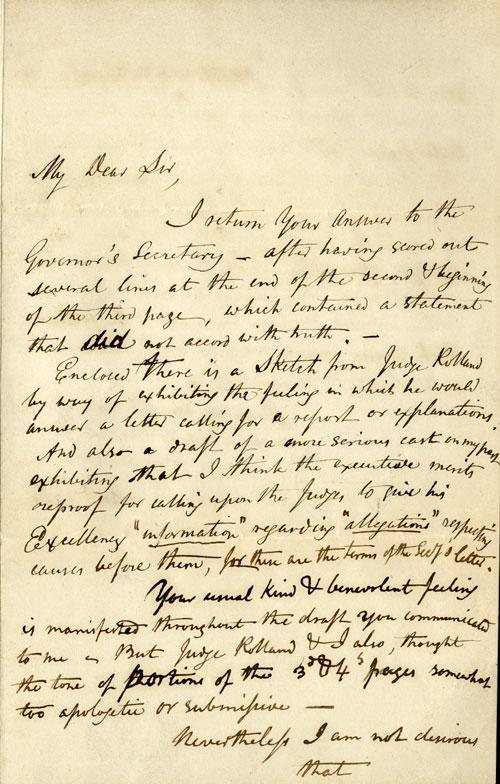 My Dear Sir,
I return Your Answer to the
Governor's Secretary – after having scored out
several lines at the end of the second & beginning
of the third page, which contained a statement
that did not accord with truth. –
Enclosed there is a Sketch from Judge Rolland
by way of exhibiting the feeling in which he would
answer a letter calling for a report or explanations.
And also a draft of a more serious cast on my part
exhibiting that I think the executive merits
reproof for calling upon the Judges to give his
Excellency "information" regarding "allegations" respecting
causes before them, for these are the terms of the Secy's letter.
Your usual kind & benevolent feeling
is manifested throughout the draft you communicated
to me – But Judge Rolland & I also, thought
the tone of portions of the 3d & 4 pages somewhat
too apologetic or submissive –
Nevertheless I am not desirous
that